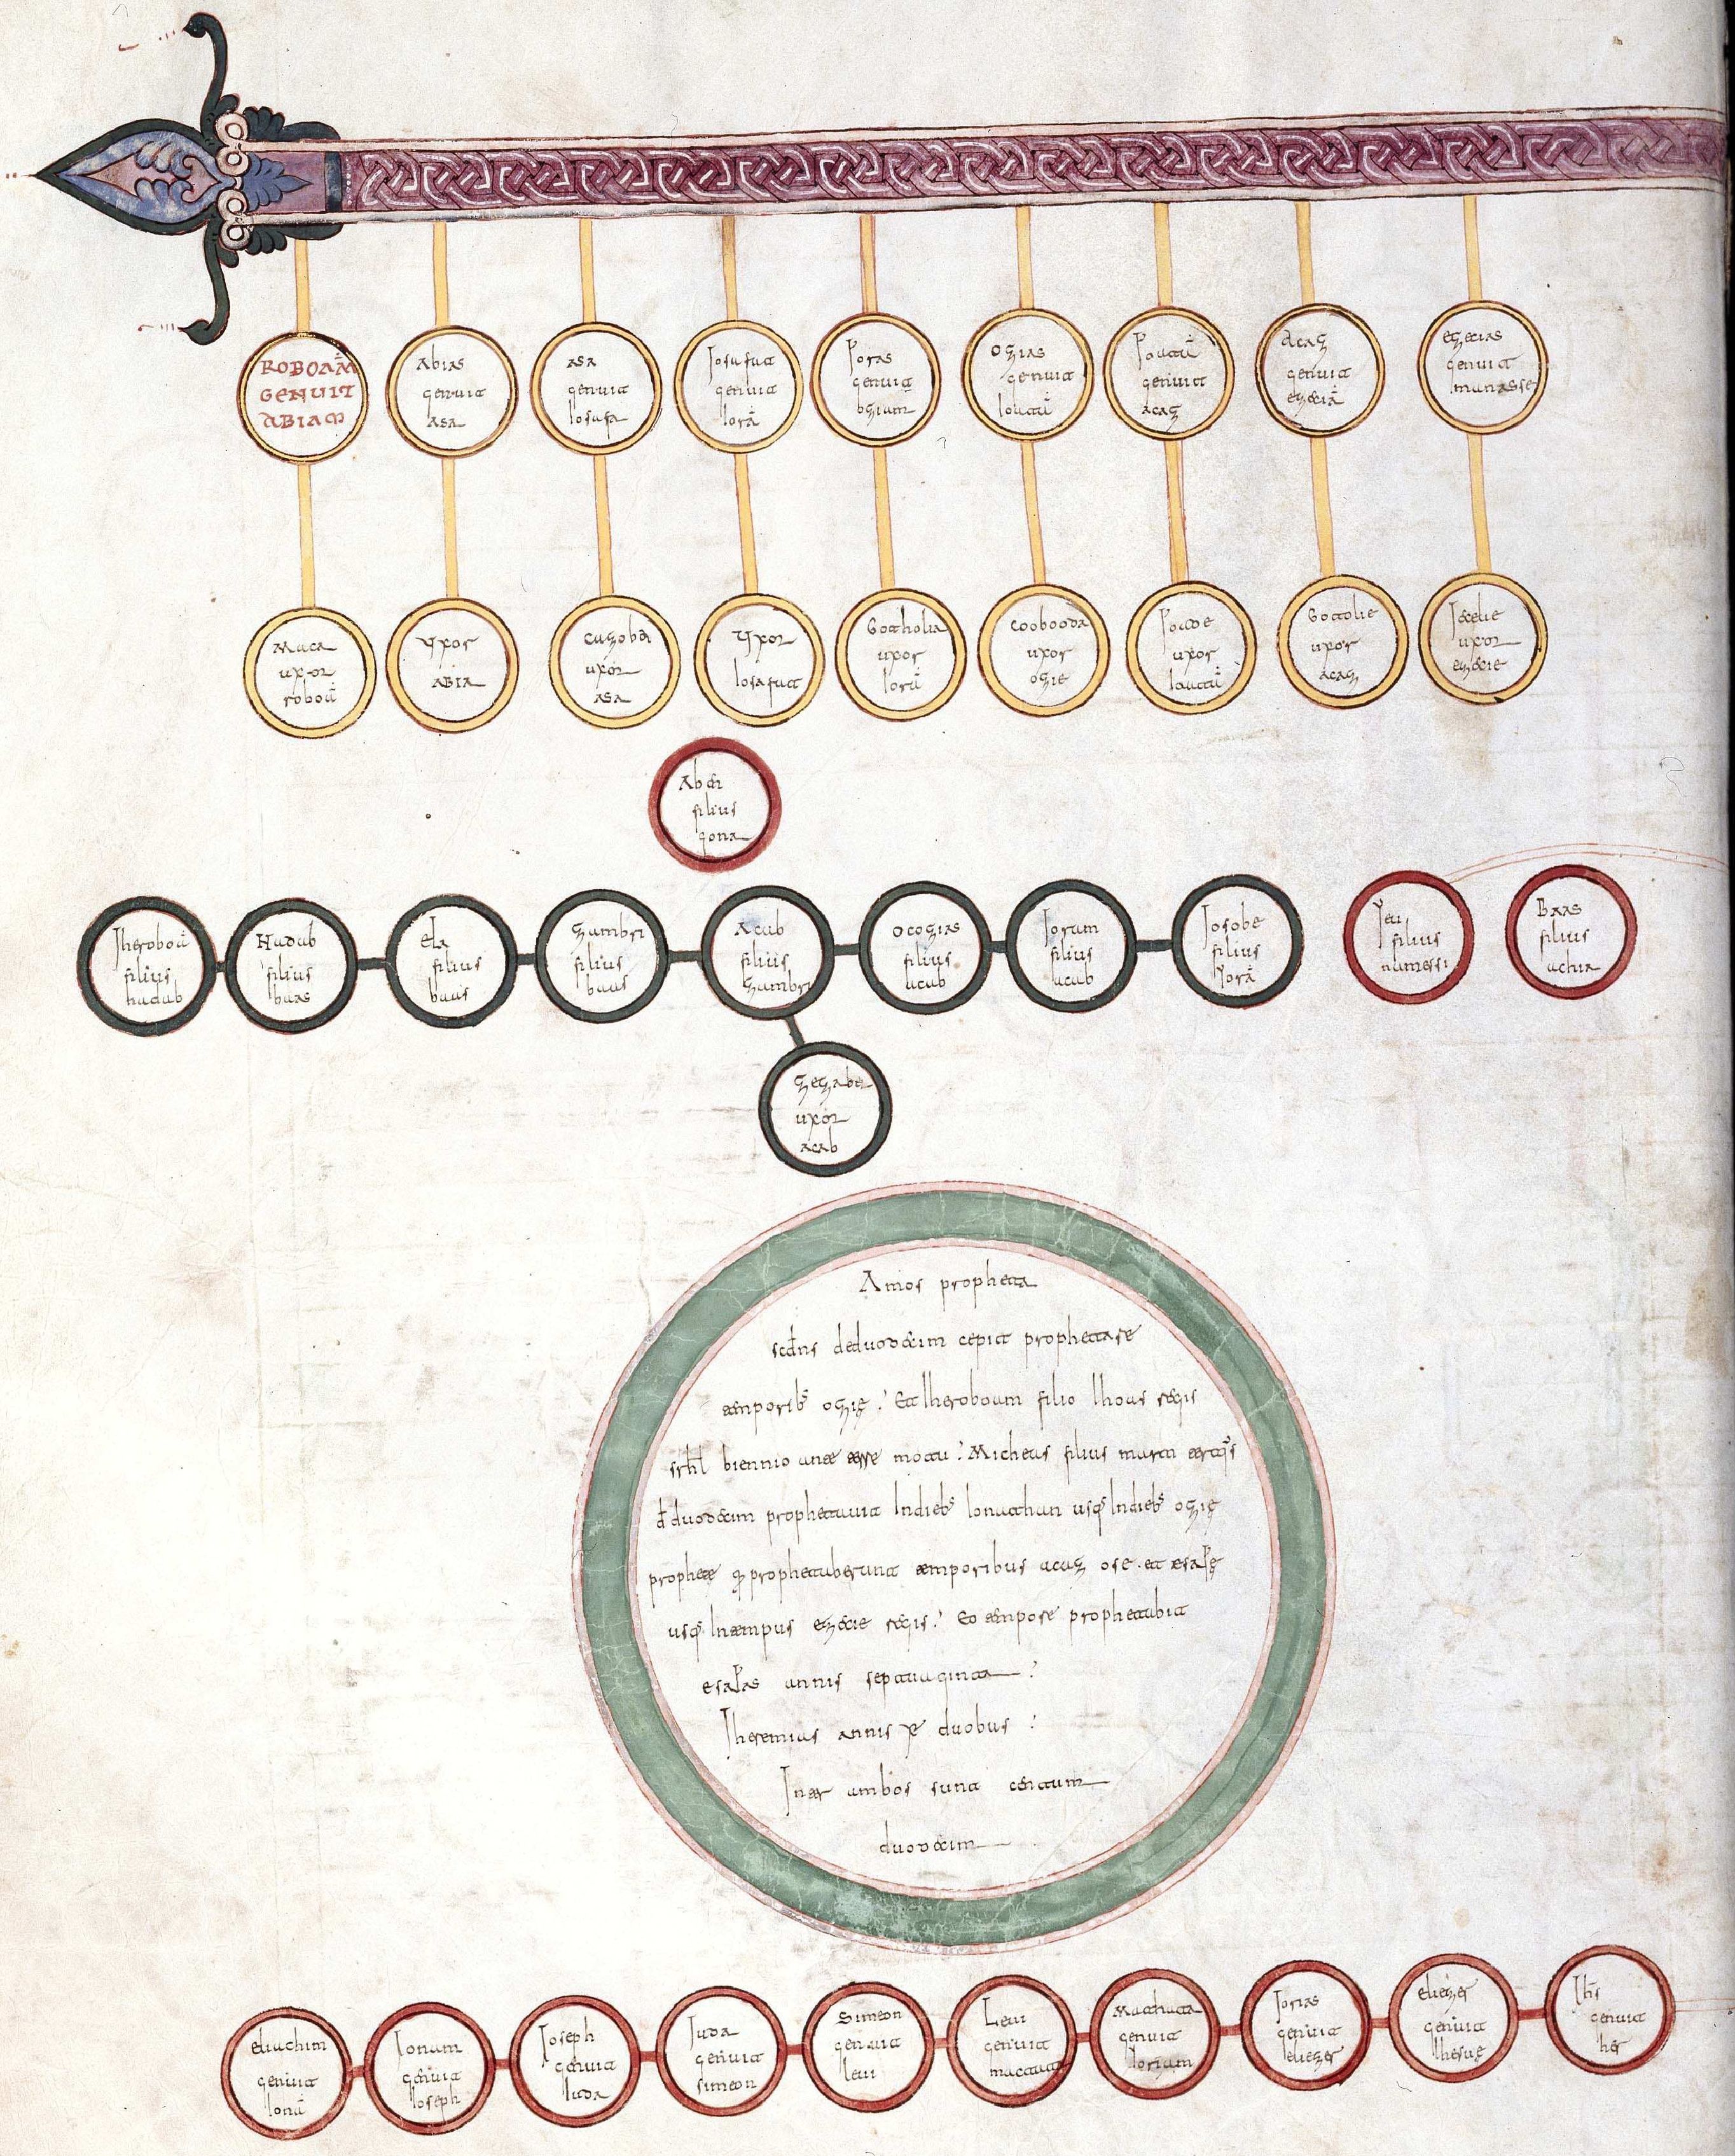 ROBOAM̄
GENUIT
ABIAM
Abias
genuit
asa
asa
genuit
Iosafa
Iosafat
genuit
Iorā
Ioras
genuit
oziam
Ozias
genuit
Ioatā
Ioatā
genuit
acaz
Acaz
genuit
ezeciā
ezecias
genuit
manasse
Maca
uxor
roboā
Uxor
abia
cuzoba
uxor
asa
Uxor
Iosafat
Gotholia
uxor
Iorā
coobooda
uxor
ozie
uxor
Ioatā
Gotolie
uxor
acaz
uxor
ezecie
filius
gona
Iheroboā
filius
nadab
Nadab
filius
baas
Ela
filius
baas
Zambri
filius
baas
Acab
filius
zambri
Ocozias
filius
acab
Ioram
filius
acab
Iosobe
filius
Iorā
Yeu
filius
namessi
Baas
filius
achia
Zezabel
uxor
acab
Amos propheta
scd̄ns deduodecim cepit prophetare
temporibs ozie; Et Iheroboam filio Ihoas regis
srhl biennio ante terre motu; Micheas filius
duodecim prophetauit Indiebs Ionathan usq Indiebs ozie
prophete q prophetaberunt temporibus acaz ose et esaye
usq Intempus ezecie regis; Eo tempore prophetabit
esayas annis septuaginta;
Iheremias annis duobus;
Inter ambos sunt centum
duodecim
eliachim
genuit
Ionā
Ionam
genuit
Ioseph
Ioseph
genuit
Iuda
Iuda
genuit
simeon
Simeon
genuit
leui
Leui
genuit
mattat
Matthata
genuit
Ioriam
Iorias
genuit
eliezer
eliezer
genuit
Ihesue
Ihs̄
genuit
her